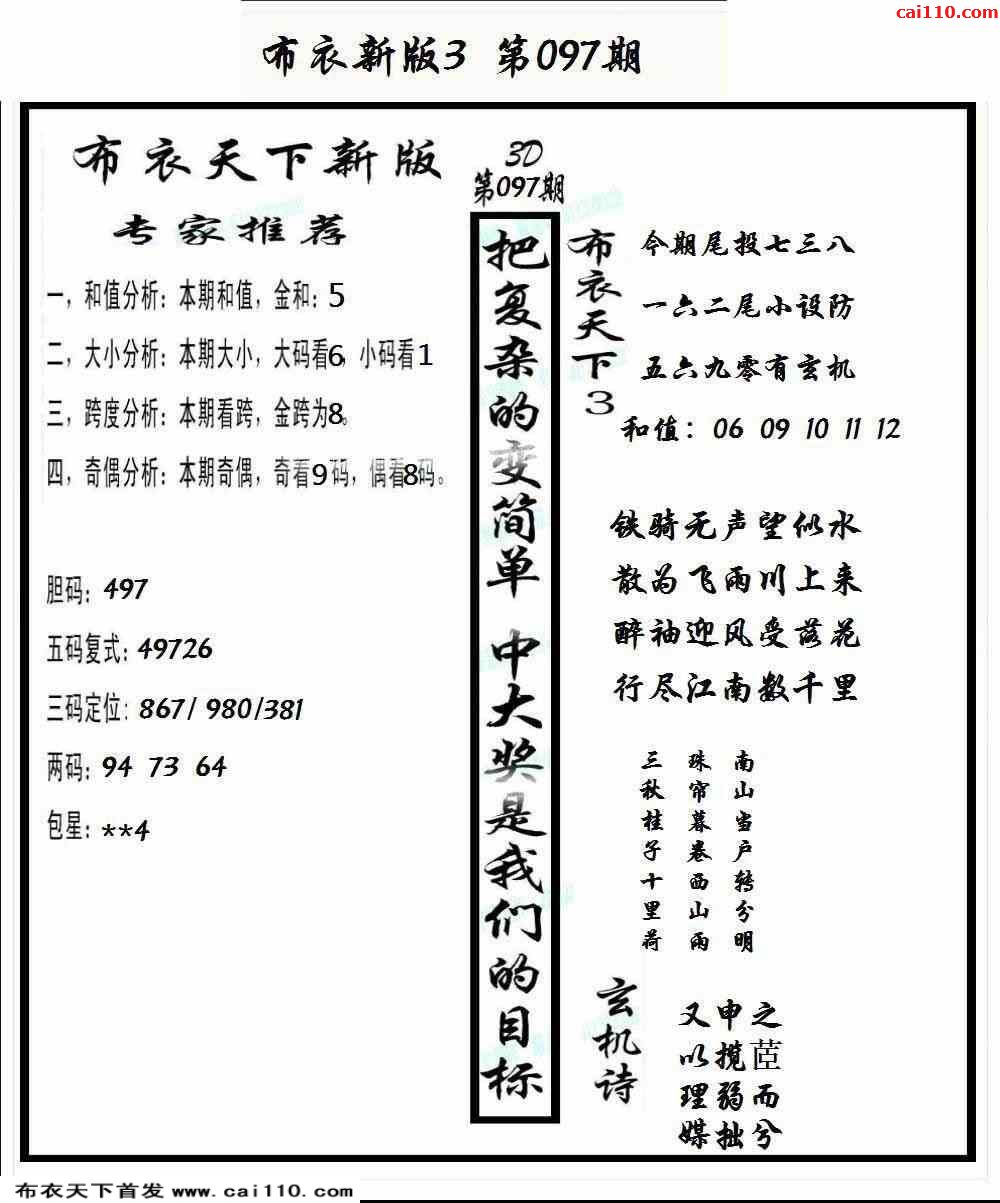 cai110.com
布衣新版3 第097期
布衣天下新版
专家推荐
一，和值分析：本期和值，金和：5
二，大小分析：本期大小，大码看6，小码看1
三，跨度分析：本期看跨，金跨为8。
四，奇偶分析：本期奇偶，奇看9码，偶看8码。
胆码：497
五码复式：49726
三码定位：867/ 980/381
两码：94 73 64
包星：**4
3D
第097期
把复杂的变简单 中大奖是我们的目标
布衣天下3
今期尾投七三八
一六二尾小设防
五六九零有玄机
和值：06 09 10 11 12
铁骑无声望似水
散为飞雨川上来
醉袖迎风受落花
行尽江南数千里
南山当户转分明
珠帘暮卷西山雨
三秋桂子十里荷
玄机诗
又申之
以揽茝
理弱而
媒拙兮
布衣天下首发 www.cai110.com